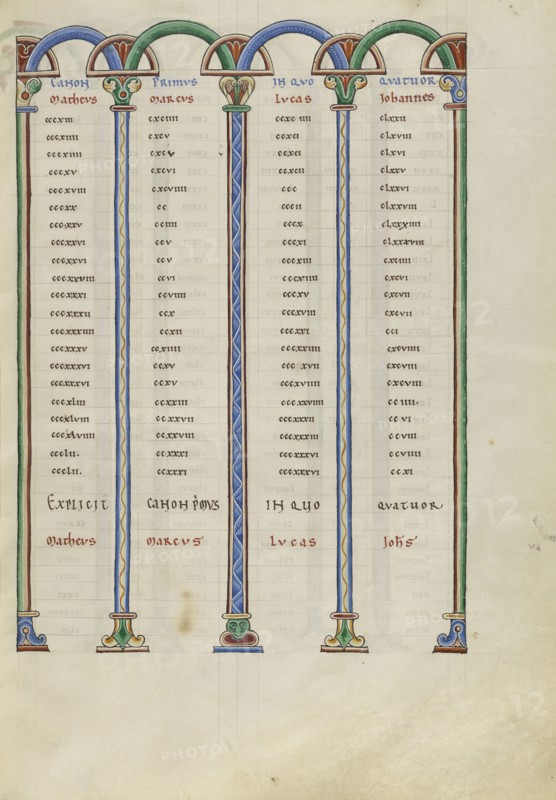 CANON PRIMVS IN QVO QVATVOR
Matheus Marcus Lucas Johannes
cccxiii cxciiii ccxciiii clxxii
cccxiiii cxcv ccxci clxviii
cccxiiii cxcv ccxci clxvi
cccxv cxcvi ccxcii clxxv
cccxviii cxcviiii ccc clxxvi
cccxx cc cccii clxxviii
cccxxv cciiii cccx clxxxiiii
cccxxvi ccv cccxi clxxxviii
cccxxvi ccv cccxiii cxciiii
cccxxviiii ccvi cccxiiii cxcvi
cccxxxi ccviiii cccxv cxcvii
cccxxxii ccx cccxviii cxcvii
cccxxxiiii ccxii cccxxi cci
cccxxxv ccxiiii cccxxiiii cxcviiii
cccxxxvi ccxv cccxvii cxcviii
cccxxxvi ccxv cccxviiii cxcviii
cccxliii ccxxiii cccxxviiii cciiii.
cccxlviii ccxxvii cccxxxii ccvi
cccxlviiii ccxxviii cccxxxiii ccviii
ccclii. ccxxxi cccxxxvi ccviiii
ccclii. ccxxxi cccxxxvi ccxi
EXPLICIT CANON P'MVS IN QVO QVATVOR
Matheus Marcus Lucas Joh's